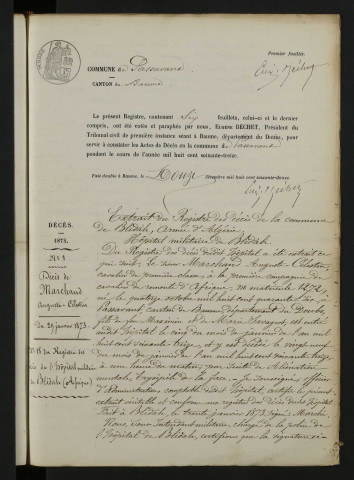 Premier feuillet.
COMMUNE de Passavant
CANTON de Baume
Le présent Registre, contenant Six feuillets, celui-ci et le dernier
compris, ont été cotés et paraphés par nous, Edmond BECHET, Président du
Tribunal civil de première instance séant à Baume, département du Doubs, pour
servir à constater les Actes de Décès en la commune de Passavant
pendant le cours de l'année mil huit cent soixante-treize.
Fait double à Baume, le Onze Décembre mil huit cent soixante-douze.
Extrait du Registre des décès de la commune
de Blidah, Armée d'Algérie
Hôpital militaire de Blidah.
DÉCÈS.
1873.
N° 1
Décès de
Marchand
Auguste Célestin
du 29 janvier 1873
Du Registre des décès dudit hôpital a été extrait ce
qui suit: Le sieur Marchand Auguste Célestin,
cavalier de première classe, à la première compagnie de
cavaliers de remonte d'Afrique, Nº matricule 1272,
né le quatorze octobre mil huit cent quarante six, à
Passavant, canton de Baume, département du Doubs,
fils de Maximin et de Marie
entré audit hôpital le vingt du mois de janvier de l'an mil
huit cent soixante treize, y est décédé le vingt neuf
du mois de janvier de l'an mil huit cent soixante treize
à une heure du matin, par suite de
Je soussigné, officier
d'Administration comptable dudit hôpital, certifie le présent
extrait véritable et conforme au registre des décès dudit hôpital
Fait à Blidah, le trente janvier 1873, signé
Nous, sous-Intendant militaire chargé de la police de
l'hôpital de Blidah, certifions que la signature ci-